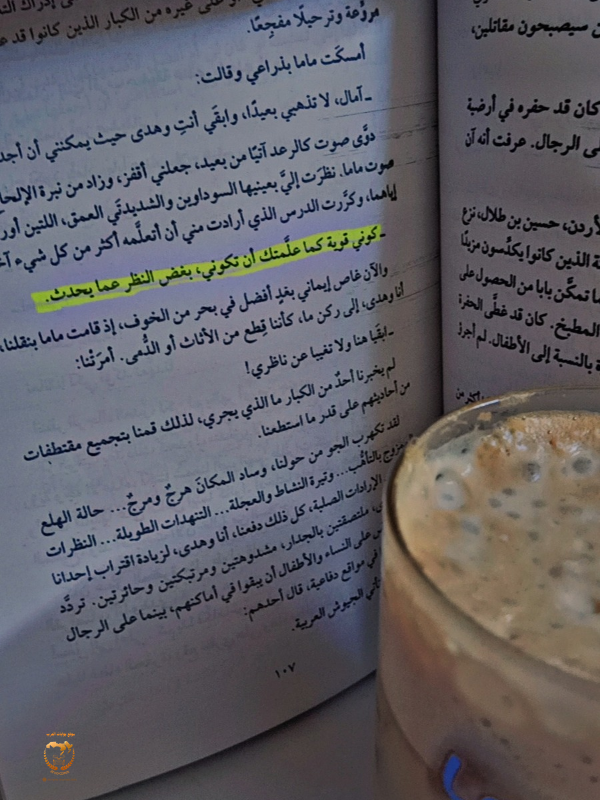 على غيره من الكبار الذين كانوا قد
مروِّعة وترحيلًا مفجِعًا.
أمسكَت ماما بذراعي وقالت:
ـ آمال، لا تذهبي بعيدًا، وابقَي أنتِ وهدى حيث يمكنني أن
دوَّى صوت كالرعد آتيًا من بعيد، جعلني أقفز، وزاد من نبرة
صوت ماما. نظرَت إليَّ بعينيها السوداوين والشديدتَي العمق، اللتين
إياهما، وكرَّرت الدرس الذي أرادت مني أن أتعلَّمه أكثر من كل شيء
ـ كوني قوية كما علَّمتك أن تكوني، بغض النظر عما يحدث.
والآن غاص إيماني بغدٍ أفضل في بحر من الخوف، إذ قامت ماما بنقلنا،
أنا وهدى، إلى ركن ما، كأننا قِطع من الأثاث أو الدُّمى. أمرَتْنا:
ـ ابقَيا هنا ولا تغيبا عن ناظري!
لم يخبرنا أحدٌ من الكبار ما الذي يجري، لذلك قمنا بتجميع مقتطفات
من أحاديثهم على قدر ما استطعنا.
لقد تكهرب الجو من حولنا، وساد المكانَ هرجٌ ومرجٌ... حالة الهلع
بالتأهُّب... وتيرة النشاط والعجلة... التنهدات الطويلة... النظرات
الإرادات الصلبة، كل ذلك دفعنا، أنا وهدى، لزيادة اقتراب إحدانا
ملتصقتين بالجدار، مشدوهتين ومرتبكتين وحائرتين. تردَّد
على النساء والأطفال أن يبقوا في أماكنهم، بينما على الرجال
في مواقع دفاعية، قال أحدهم:
الجيوش العربية.
١٠٧
سيصبحون مقاتلين،
كان قد حفره في أرضية
الرجال. عرفت أنه آن
الأردن، حسين بن طلال، نزع
الذين كانوا يكدِّسون مزيدًا
تمكَّن بابا من الحصول على
المطبخ. كان قد غطَّى الحفرة
بالنسبة إلى الأطفال. لم أجرؤ